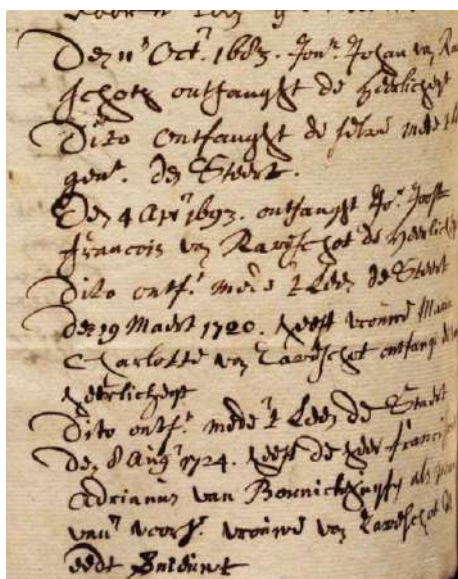 Den 11 Octr. 1683. Jonr. Johan van Ra
schot ontfanght de heerlicheyt
Dito ontfanght de selve mede t l
gent. den Steert.
Den 4 Apr 1693. ontfanght Jor. Joost
francois van Ravesschot de heerlich
Dito ontf. mede t Leen de Steert
den 19 Maert 1720. heeft vrouwe Maria
Charlotte van ontfange de
heerlicheyt
Dito ontf. mede 't Leen de Steert
den 8 Aug 1724. heeft de heer francis
Adrianus van als
van voors. vrouwe van
eedt